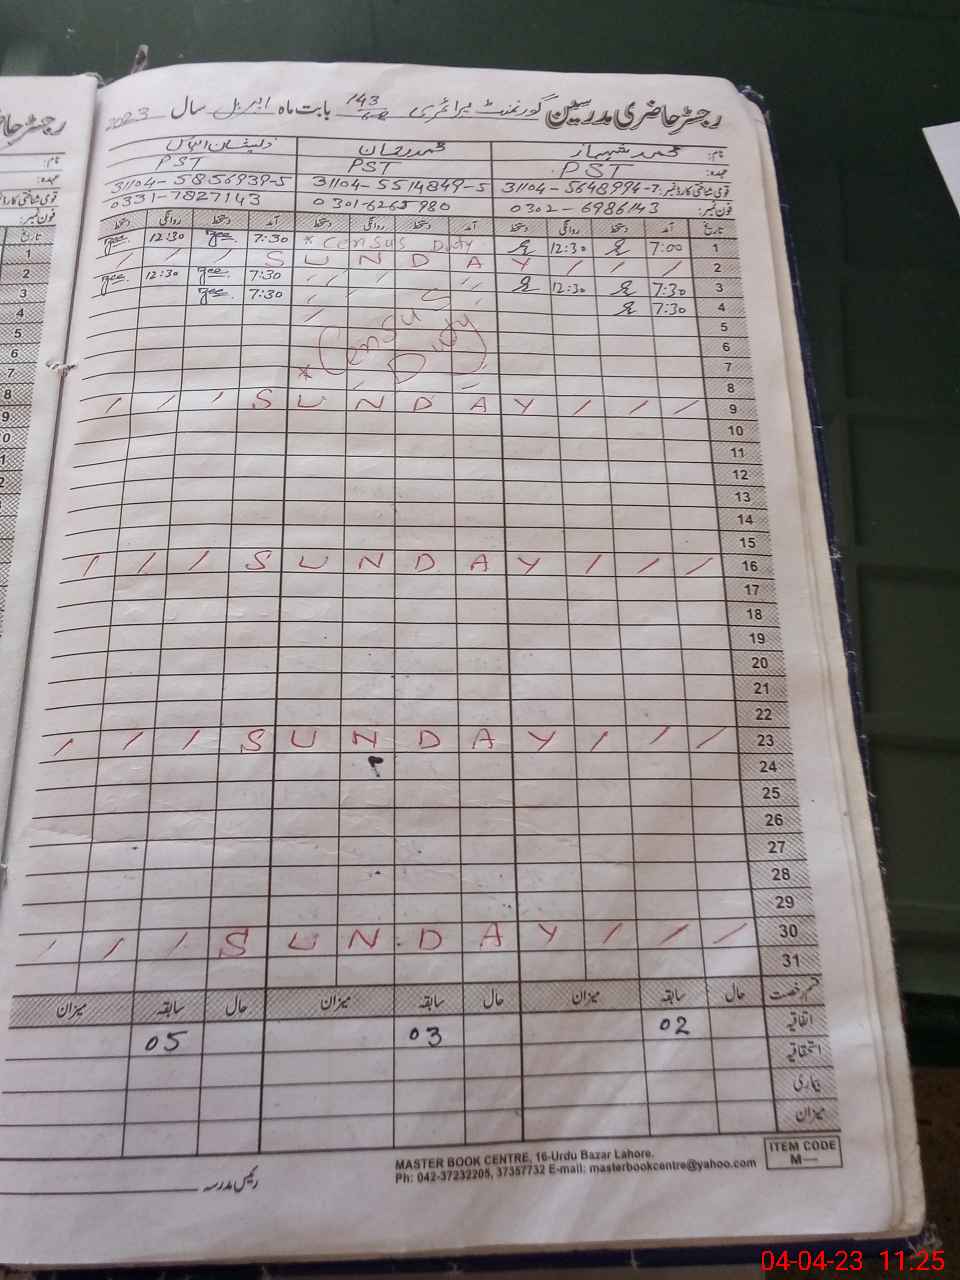 رجسٹر حاضری مدرسین گورنمنٹ پرائمری 143 بابت ماہ اپریل سال 2023
نام: محمد شہباز محمد ریحان ذیشان
عہدہ: PST PST PST
قومی شناختی کارڈ نمبر: 31104-5648994-7 31104-5514849-5 31104-5856939-5
فون نمبر: 0302-6986143 0301-6265980 0331-7827143
تاریخ آمد دستخط روانگی دستخط آمد دستخط روانگی دستخط آمد دستخط روانگی دستخط
1 7:00 12:30 * Census Duty 7:30 12:30
2 / / / SUNDAY / / /
3 7:30 12:30 7:30 12:30
4 7:30 7:30
5
6 * (Census Duty)
7
8
9 / / / SUNDAY / / /
10
11
12
13
14
15
16 / / / SUNDAY / / /
17
18
19
20
21
22
23 / / / SUNDAY / / /
24
25
26
27
28
29
30 / / / SUNDAY / / /
31
قسم رخصت حال سابقہ میزان حال سابقہ میزان حال سابقہ میزان
اتفاقیہ 02 03 05
استحقاقیہ
بیماری
میزان
رئیس مدرسہ
MASTER BOOK CENTRE, 16-Urdu Bazar Lahore.
Ph: 042-37232205, 37357732 E-mail: masterbookcentre@yahoo.com
ITEM CODE
M—
04-04-23 11:25